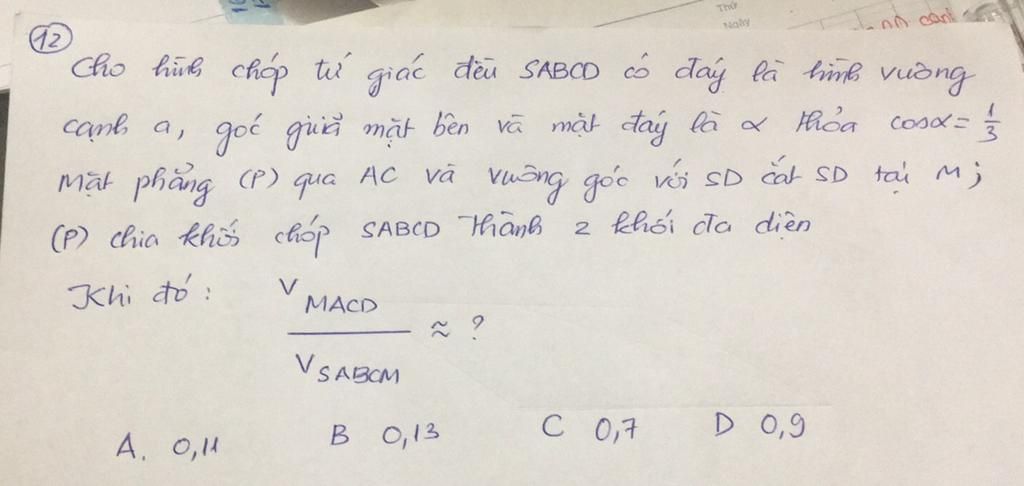 Thứ
Ngày
12
Cho hình chóp tứ giác đều SABCD có đáy là hình vuông
cạnh a, góc giữa mặt bên và mặt đáy là α thỏa cosα = 1/3
Mặt phẳng (P) qua AC và vuông góc với SD cắt SD tại M;
(P) chia khối chóp SABCD thành 2 khối đa diện
Khi đó: V MACD / V SABCM ≈ ?
A. 0,11 B 0,13 C 0,7 D 0,9